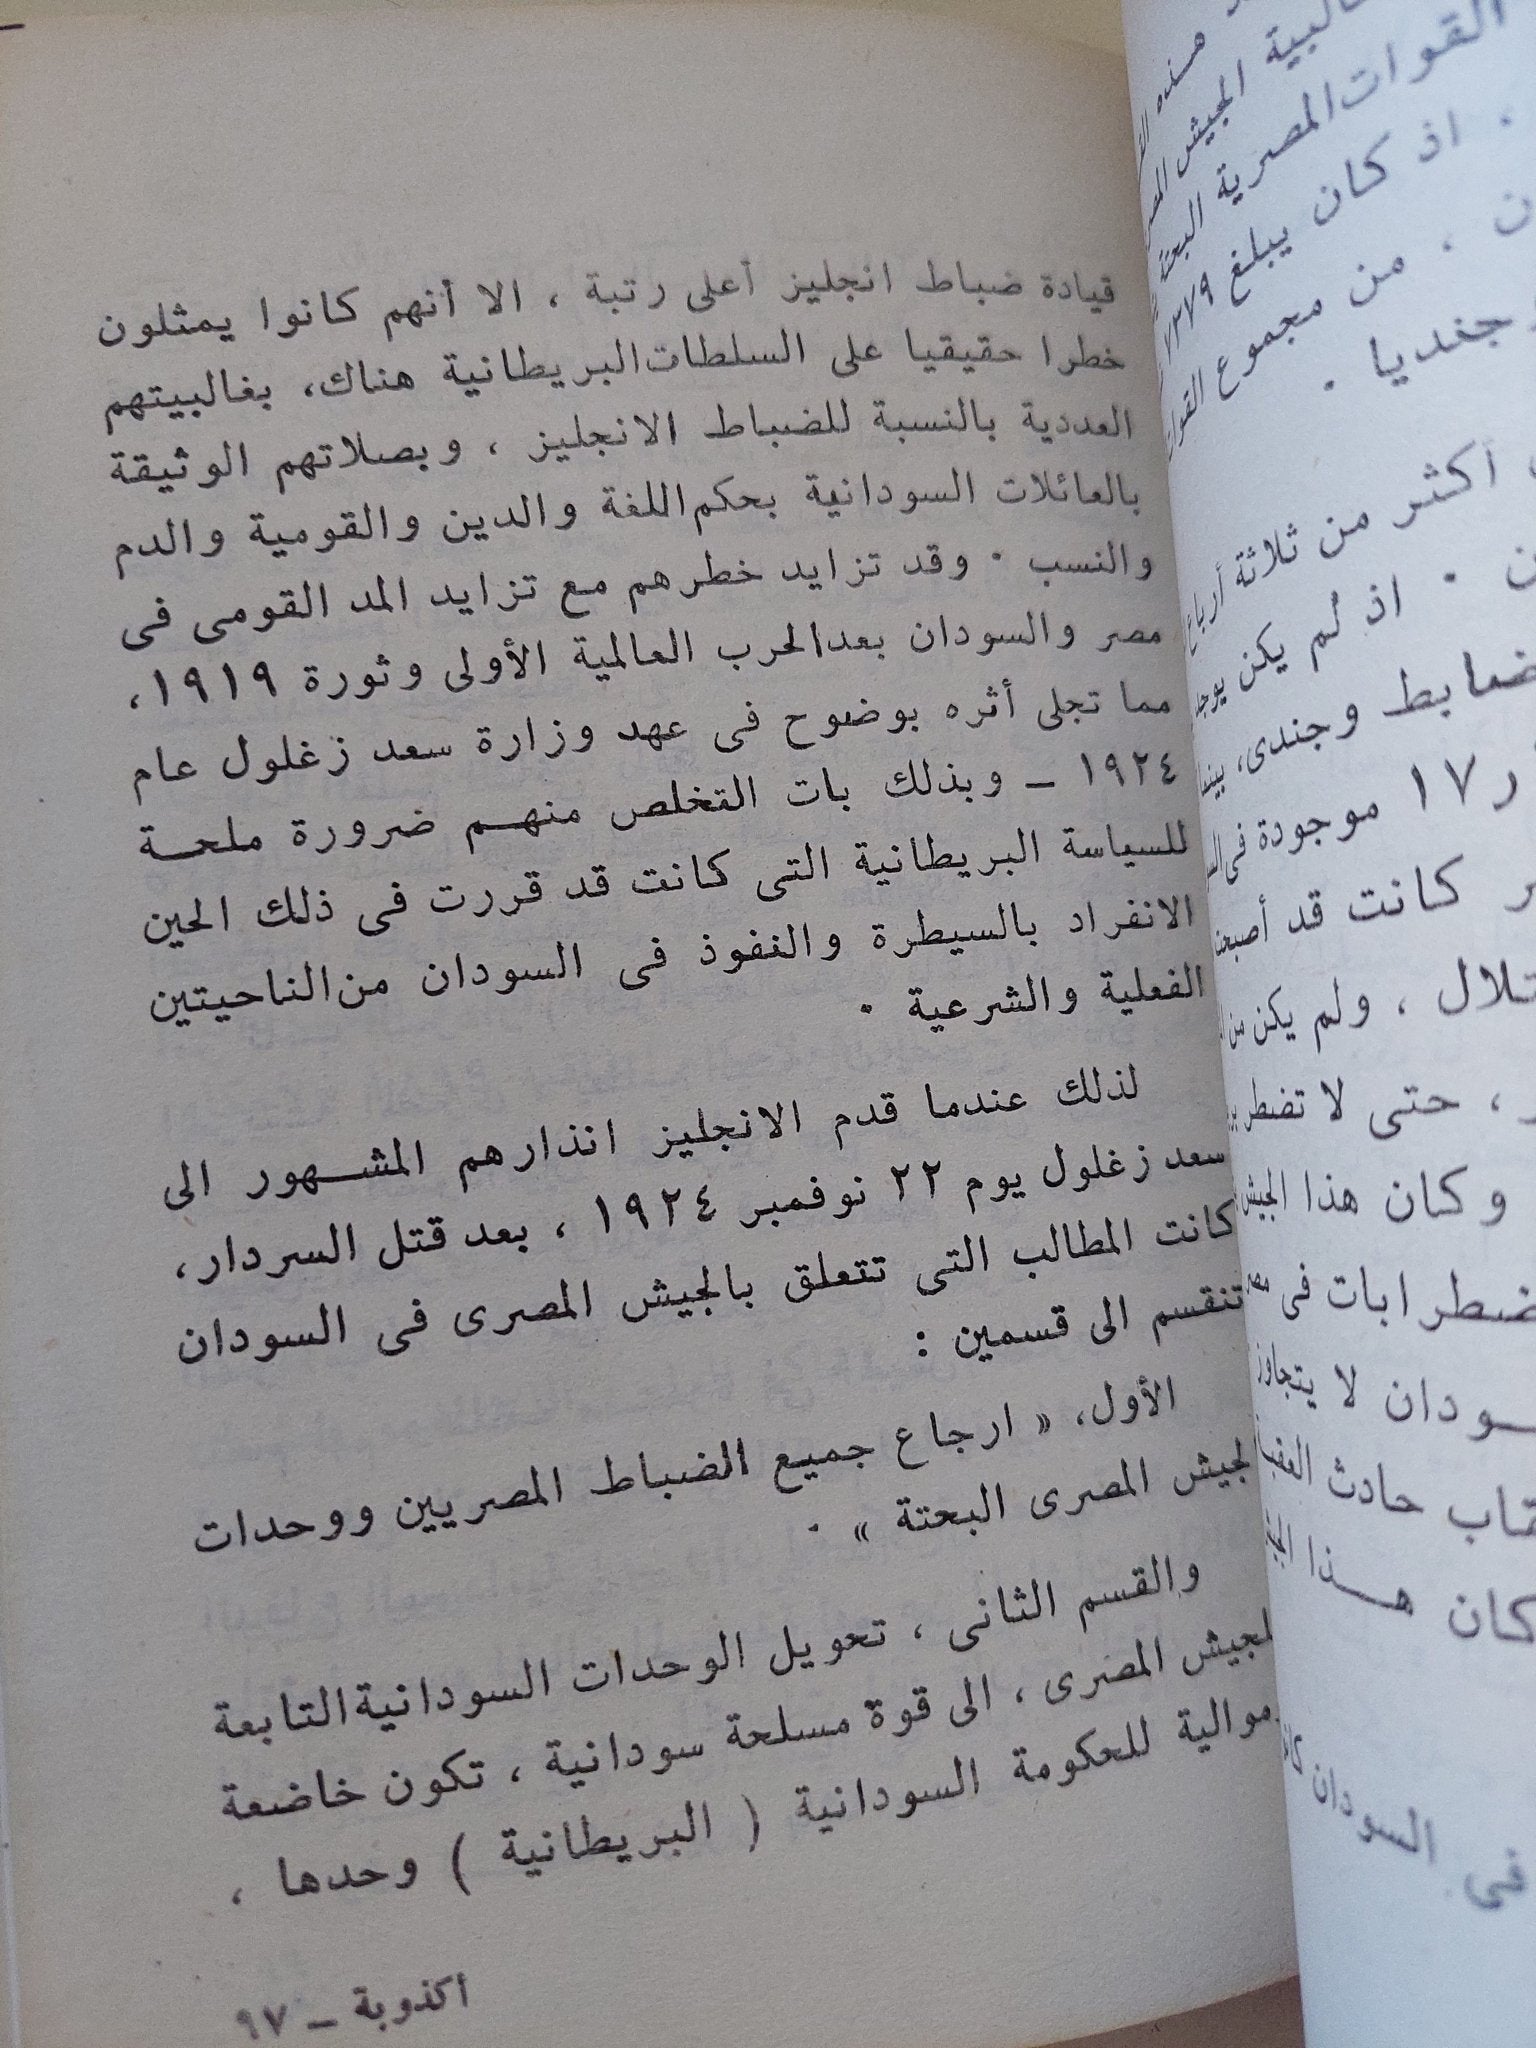 قيادة ضباط انجليز أعلى رتبة ، الا أنهم كانوا يمثلون
خطرا حقيقيا على السلطات البريطانية هناك، بغالبيتهم
العددية بالنسبة للضباط الانجليز ، وبصلاتهم الوثيقة
بالعائلات السودانية بحكم اللغة والدين والقومية والدم
والنسب . وقد تزايد خطرهم مع تزايد المد القومى فى
مصر والسودان بعد الحرب العالمية الأولى وثورة ١٩١٩،
مما تجلى أثره بوضوح فى عهد وزارة سعد زغلول عام
١٩٢٤ ـ وبذلك بات التخلص منهم ضرورة ملحة
للسياسة البريطانية التى كانت قد قررت فى ذلك الحين
الانفراد بالسيطرة والنفوذ فى السودان من الناحيتين
الفعلية والشرعية .
لذلك عندما قدم الانجليز انذارهم المشهور الى
سعد زغلول يوم ٢٢ نوفمبر ١٩٢٤ ، بعد قتل السردار،
كانت المطالب التى تتعلق بالجيش المصرى فى السودان
تنقسم الى قسمين :
الأول، « ارجاع جميع الضباط المصريين ووحدات
الجيش المصرى البحتة » .
والقسم الثانى ، تحويل الوحدات السودانية التابعة
للجيش المصرى ، الى قوة مسلحة سودانية ، تكون خاضعة
وموالية للحكومة السودانية ( البريطانية ) وحدها ،
أكذوبة ـ ٩٧
هذه
القوات المصرية البحتة
، اذ كان يبلغ
، من مجموع القوات
جنديا .
أكثر من ثلاثة أرباع
. اذ لم يكن يوجد
وجندى، بينما
موجودة فى
كانت قد أصبحت
، ولم يكن من
، حتى لا تضطر
وكان هذا الجيش
فى مصر
لا يتجاوز
حادث
كان هـذا
فى السودان